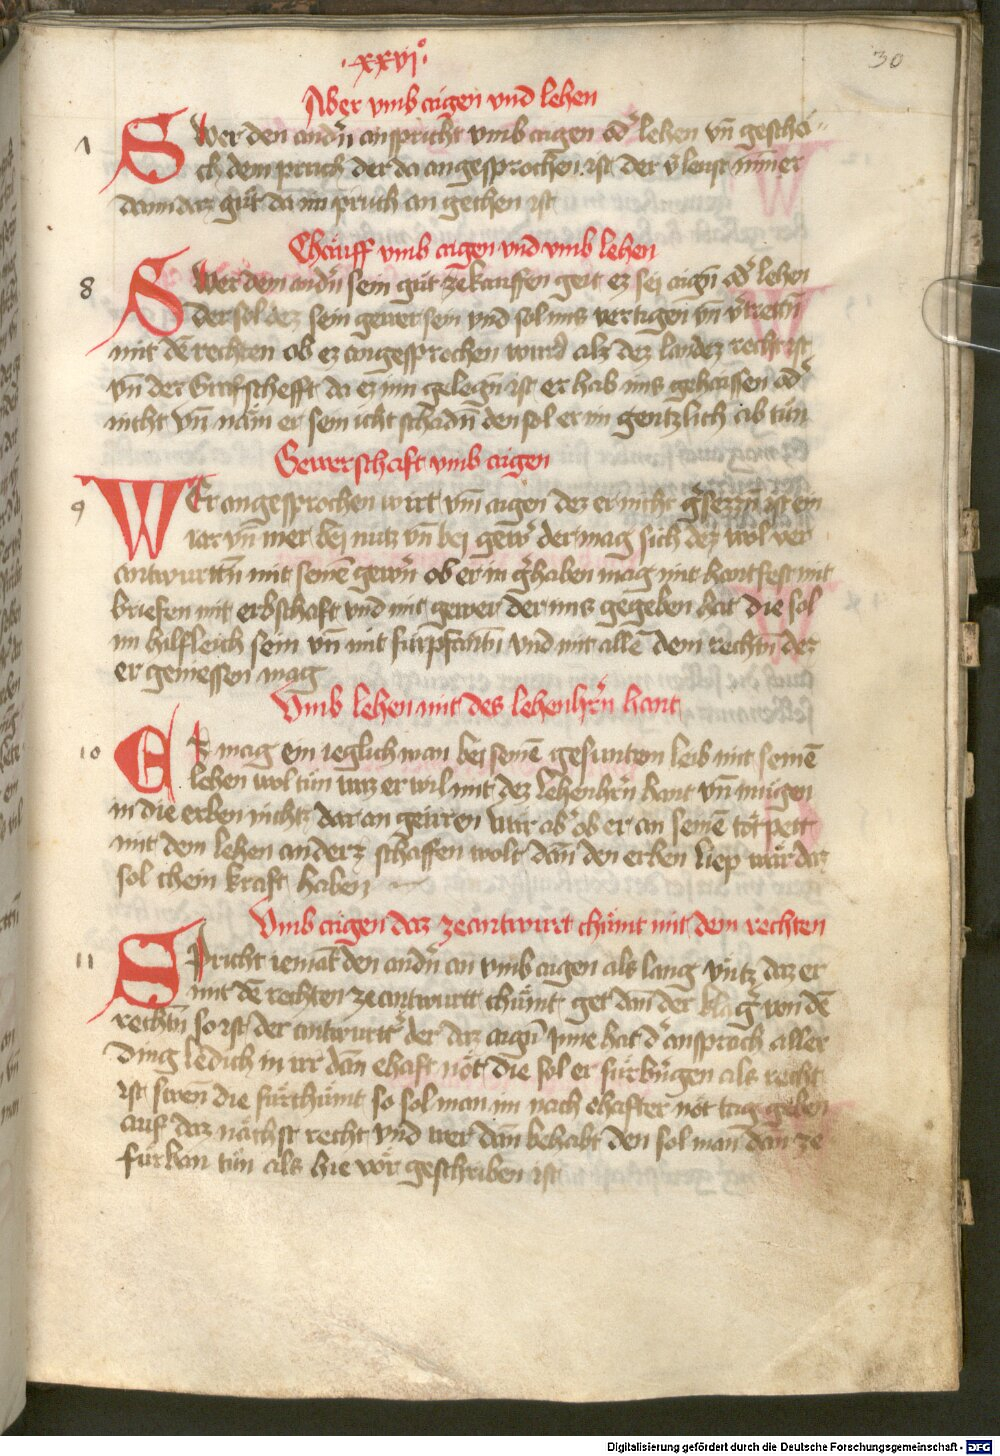 ·xxvjº·
30
Aber vmb aigen vnd lehen
1 Swer den andn̄ anspricht vmb aigen od' lehen vn̄ geschei=
ch dem pruch der da angesprochen ist der v'leust nimer
dann daz gůt da im pruch an gethen ist
Chauff vmb aigen vnd vmb lehen
8 Swer dem andn̄ sein gůt ze kauffen geit ez sej aign̄ od' lehen
der sol dez sein gewer sein vnd sol ims vertigen vn̄ v'tretn̄
mit dē rechten ob ez angesprochen wurd alz dez landez recht ist
vn̄ der Grafschefft da ez inn gelegn̄ ist er hab ims gehaissen od'
nicht vn̄ näm er sein icht schadn̄ den sol er im gentzlich ab tůn
Gewerschaft vmb aigen
9 Wer angesprochen wirt vm̄ aigen dez er nicht g'sezzn̄ ist ein
iar vn̄ mer bej nutz vn̄ bej gew' der mag sich dez wol ver
antwurttn̄ mit seinē gewn̄ ob er in g'haben mag mit hantfest mit
briefen mit erbschaft vnd mit gewer der ims gegeben hat die sol
im hilfleich sein vn̄ mit fürpfantn̄ vnd mit allē dem rechtn̄ dez
er geniessen mag
Vmb lehen mit des lehenhr̄n hant
10 Ez mag ein ieglich man bej seinē gesuntem leib mit seinē
lehen wol tůn waz er wil mit dez lehenhr̄n hant vn̄ mügen
in die erben nichtz dar an geirren wär ab' ob er an seinē tötpett
mit dem lehen anderz schaffen wolt dan̄ den erben liep wär daz
sol chein kraft haben
Vmb aigen daz ze antwurt chümt mit dem rechten
11 Spricht iemāt den andn̄ an vmb aigen als lang vntz daz er
mit dē rechten ze antwurtt chümt get dan̄ der klag' von dē
rechtn̄ so ist der antwurtt' der daz aign̄ inne hat d' ansprach aller
ding ledich in irr dan̄ ehaft nöt die sol er fürbringen als recht
ist swen̄ die fürchümt so sol man im nach ehafter nöt tag geben
auf daz nächst recht vnd wer dan̄ behabt den sol man dan̄ ze
fürban tůn als hie vor geschriben ist
Digitalisierung gefördert durch die Deutsche Forschungsgemeinschaft - DFG